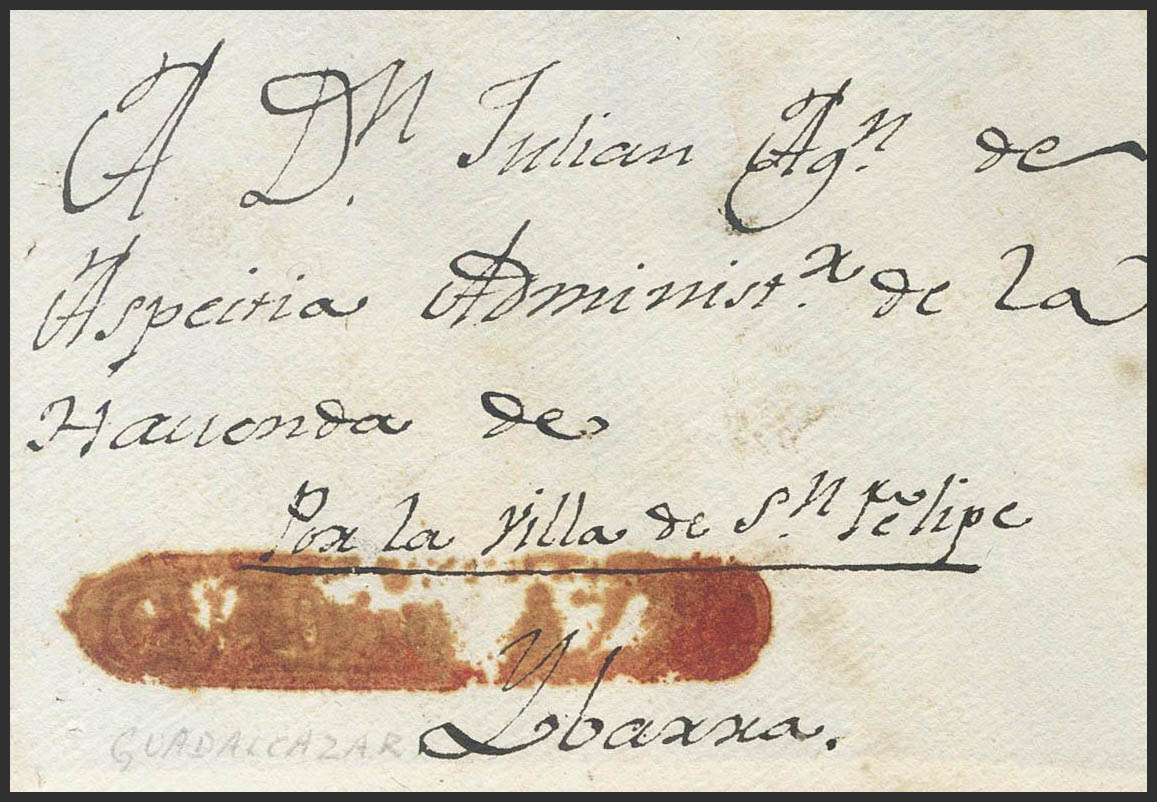 A Dn. Julian Agn. de
Aspeitia Administr. de la
Hacienda de
Por la Villa de Sn. Felipe
Ybarra.
GUADALCAZAR